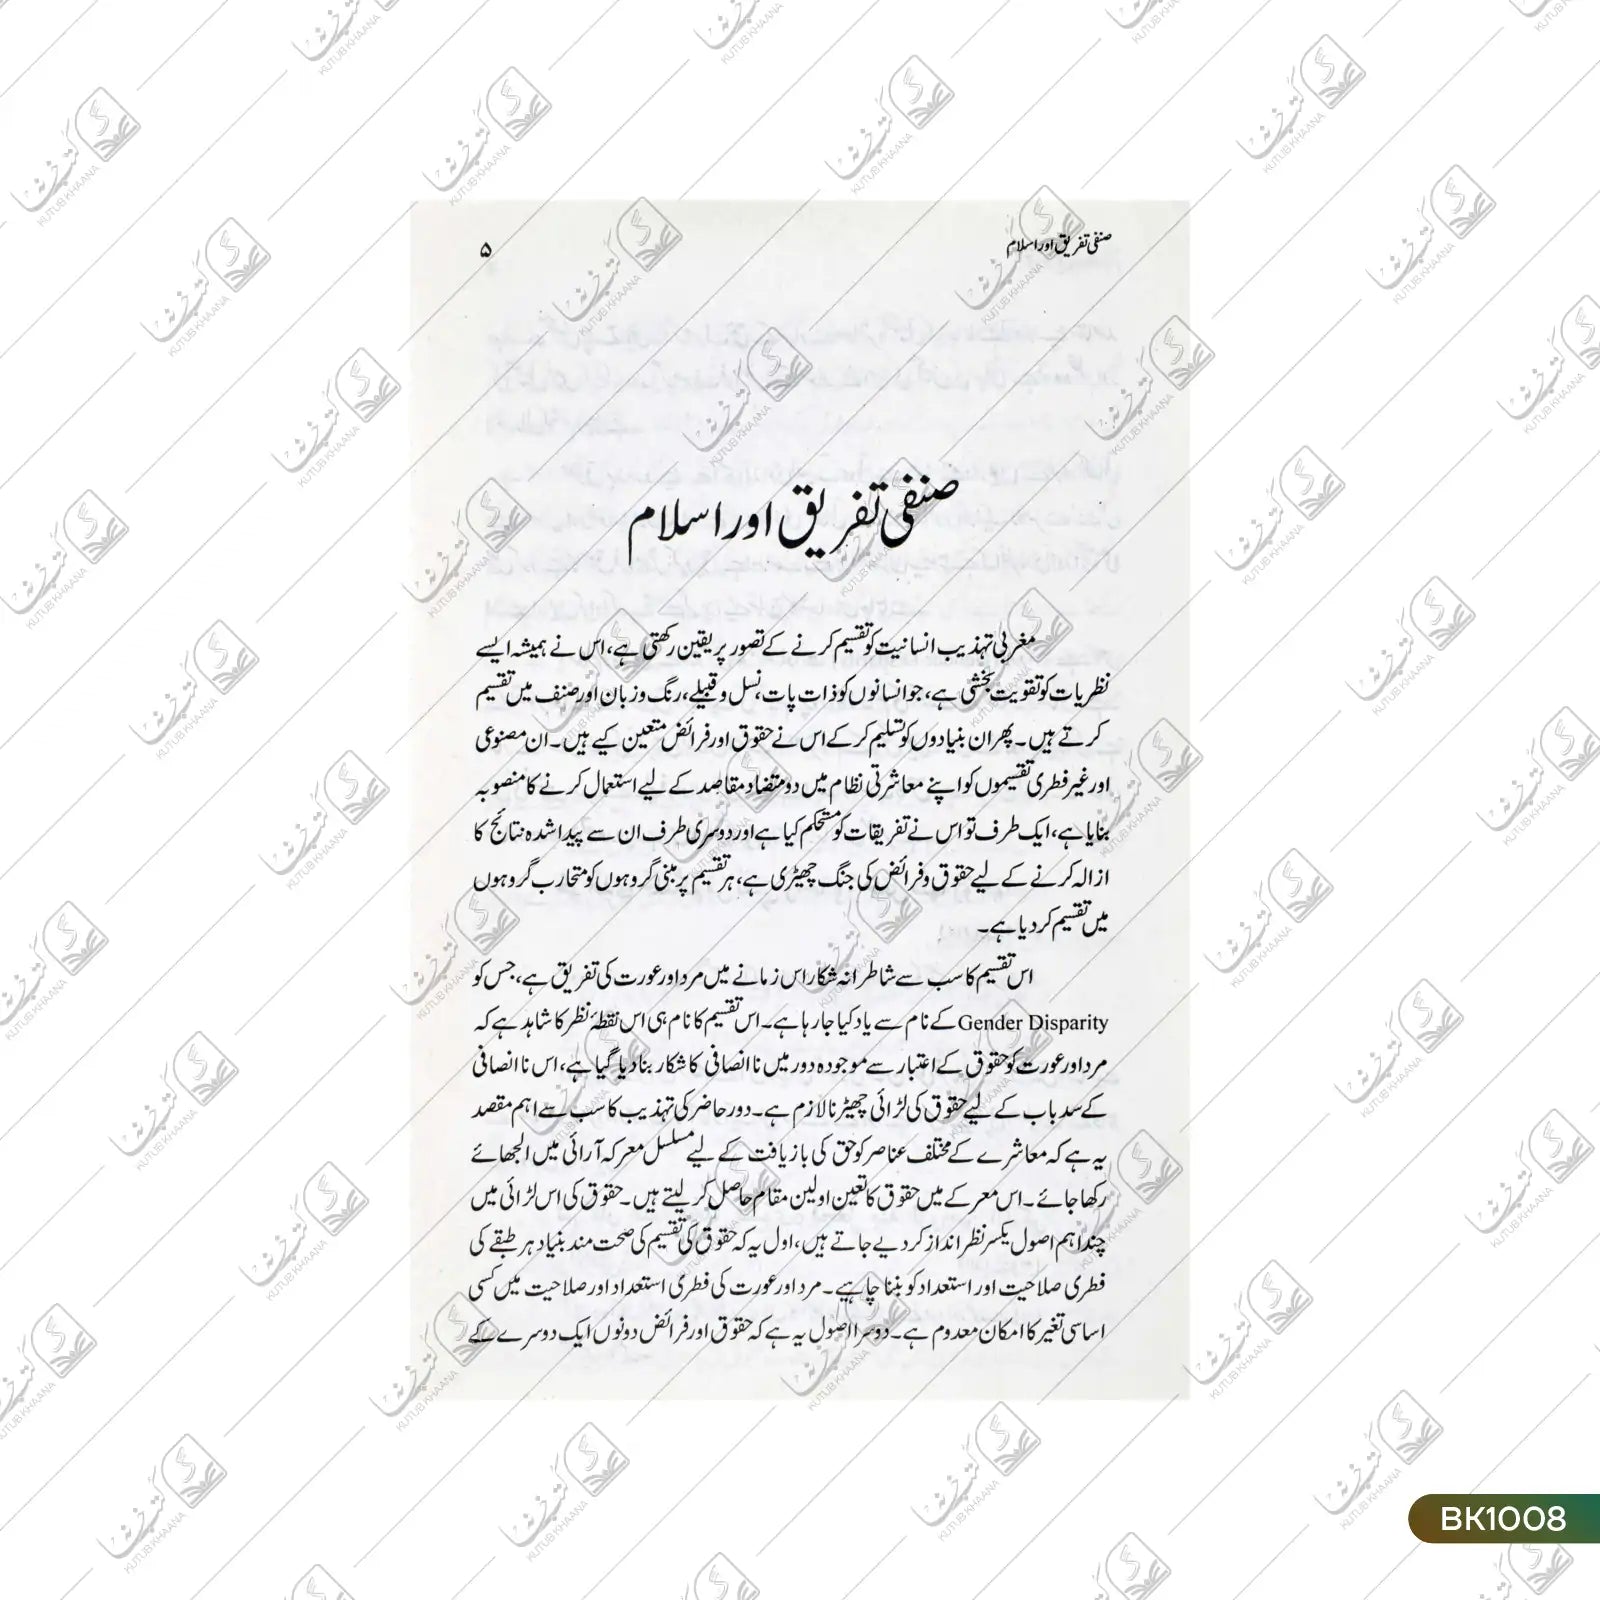 صنفی تفریق اور اسلام
۵
صنفی تفریق اور اسلام
مغربی تہذیب انسانیت کو تقسیم کرنے کے تصور پر یقین رکھتی ہے، اس نے ہمیشہ ایسے
نظریات کو تقویت بخشی ہے، جو انسانوں کو ذات پات، نسل و قبیلے، رنگ و زبان اور صنف میں تقسیم
کرتے ہیں۔ پھر ان بنیادوں کو تسلیم کر کے اس نے حقوق اور فرائض متعین کیے ہیں۔ ان مصنوعی
اور غیر فطری تقسیموں کو اپنے معاشرتی نظام میں دو متضاد مقاصد کے لیے استعمال کرنے کا منصوبہ
بنایا ہے، ایک طرف تو اس نے تفریقات کو مستحکم کیا ہے اور دوسری طرف ان سے پیدا شدہ نتائج کا
ازالہ کرنے کے لیے حقوق و فرائض کی جنگ چھیڑی ہے، ہر تقسیم پر مبنی گروہوں کو متحارب گروہوں
میں تقسیم کر دیا ہے۔
اس تقسیم کا سب سے شاطرانہ شکار اس زمانے میں مرد اور عورت کی تفریق ہے، جس کو
Gender Disparity کے نام سے یاد کیا جا رہا ہے۔ اس تقسیم کا نام ہی اس نقطۂ نظر کا شاہد ہے کہ
مرد اور عورت کو حقوق کے اعتبار سے موجودہ دور میں نا انصافی کا شکار بنا دیا گیا ہے، اس نا انصافی
کے سد باب کے لیے حقوق کی لڑائی چھیڑنا لازم ہے۔ دور حاضر کی تہذیب کا سب سے اہم مقصد
یہ ہے کہ معاشرے کے مختلف عناصر کو حق کی بازیافت کے لیے مسلسل معرکہ آرائی میں الجھائے
رکھا جائے۔ اس معرکے میں حقوق کا تعین اولین مقام حاصل کر لیتے ہیں۔ حقوق کی اس لڑائی میں
چند اہم اصول یکسر نظر انداز کر دیے جاتے ہیں، اول یہ کہ حقوق کی تقسیم کی صحت مند بنیاد ہر طبقے کی
فطری صلاحیت اور استعداد کو بننا چاہیے۔ مرد اور عورت کی فطری استعداد اور صلاحیت میں کسی
اساسی تغیر کا امکان معدوم ہے۔ دوسرا اصول یہ ہے کہ حقوق اور فرائض دونوں ایک دوسرے کے
BK1008
کتب خانہ
KUTUB KHAANA